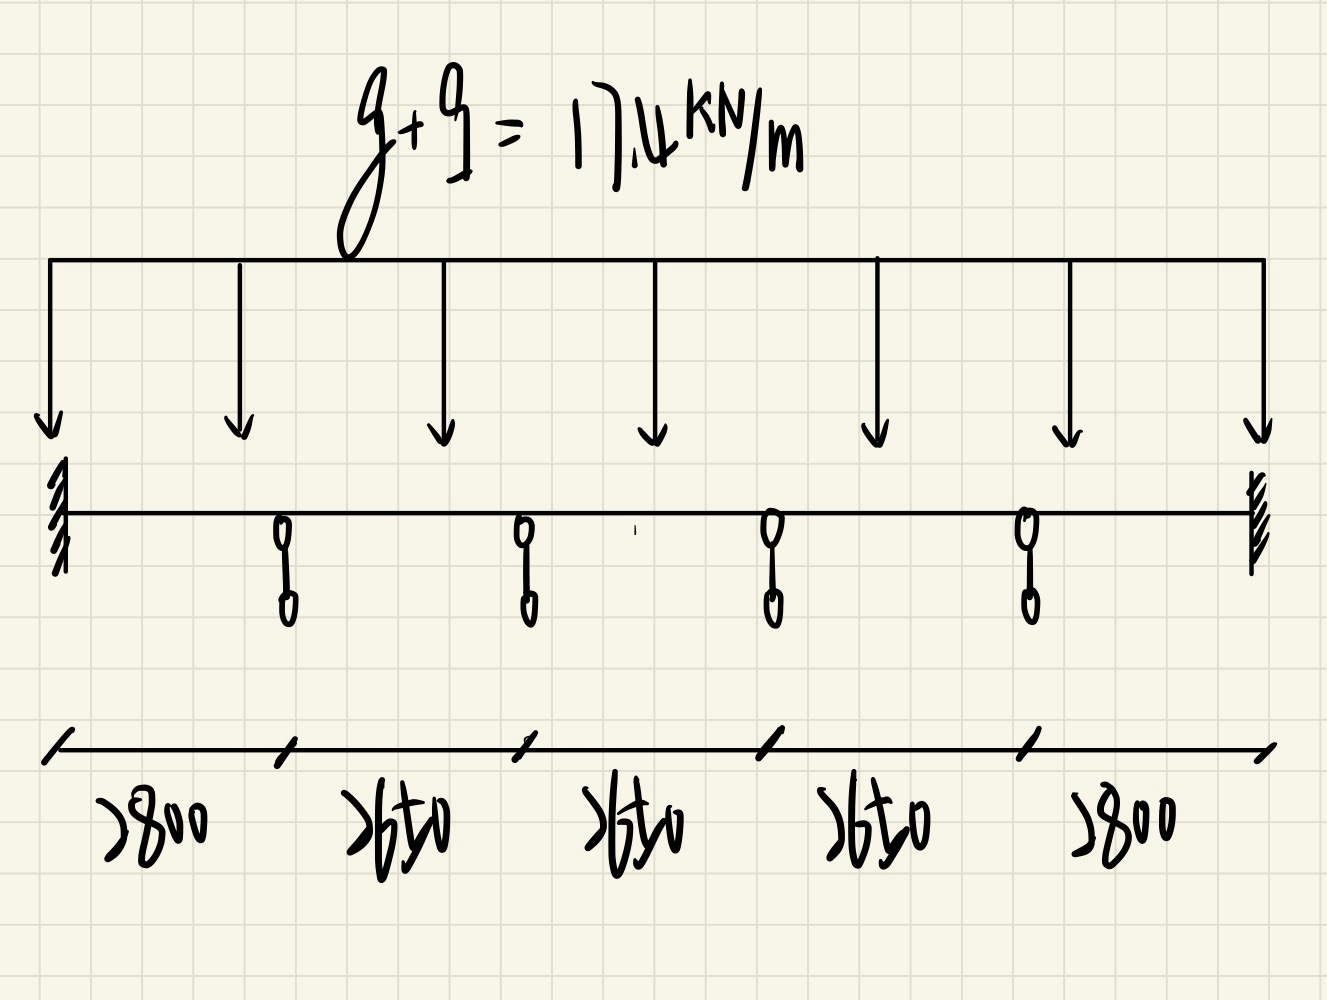 g+q=17.4kN/m
2800 2650 2650 2650 2800